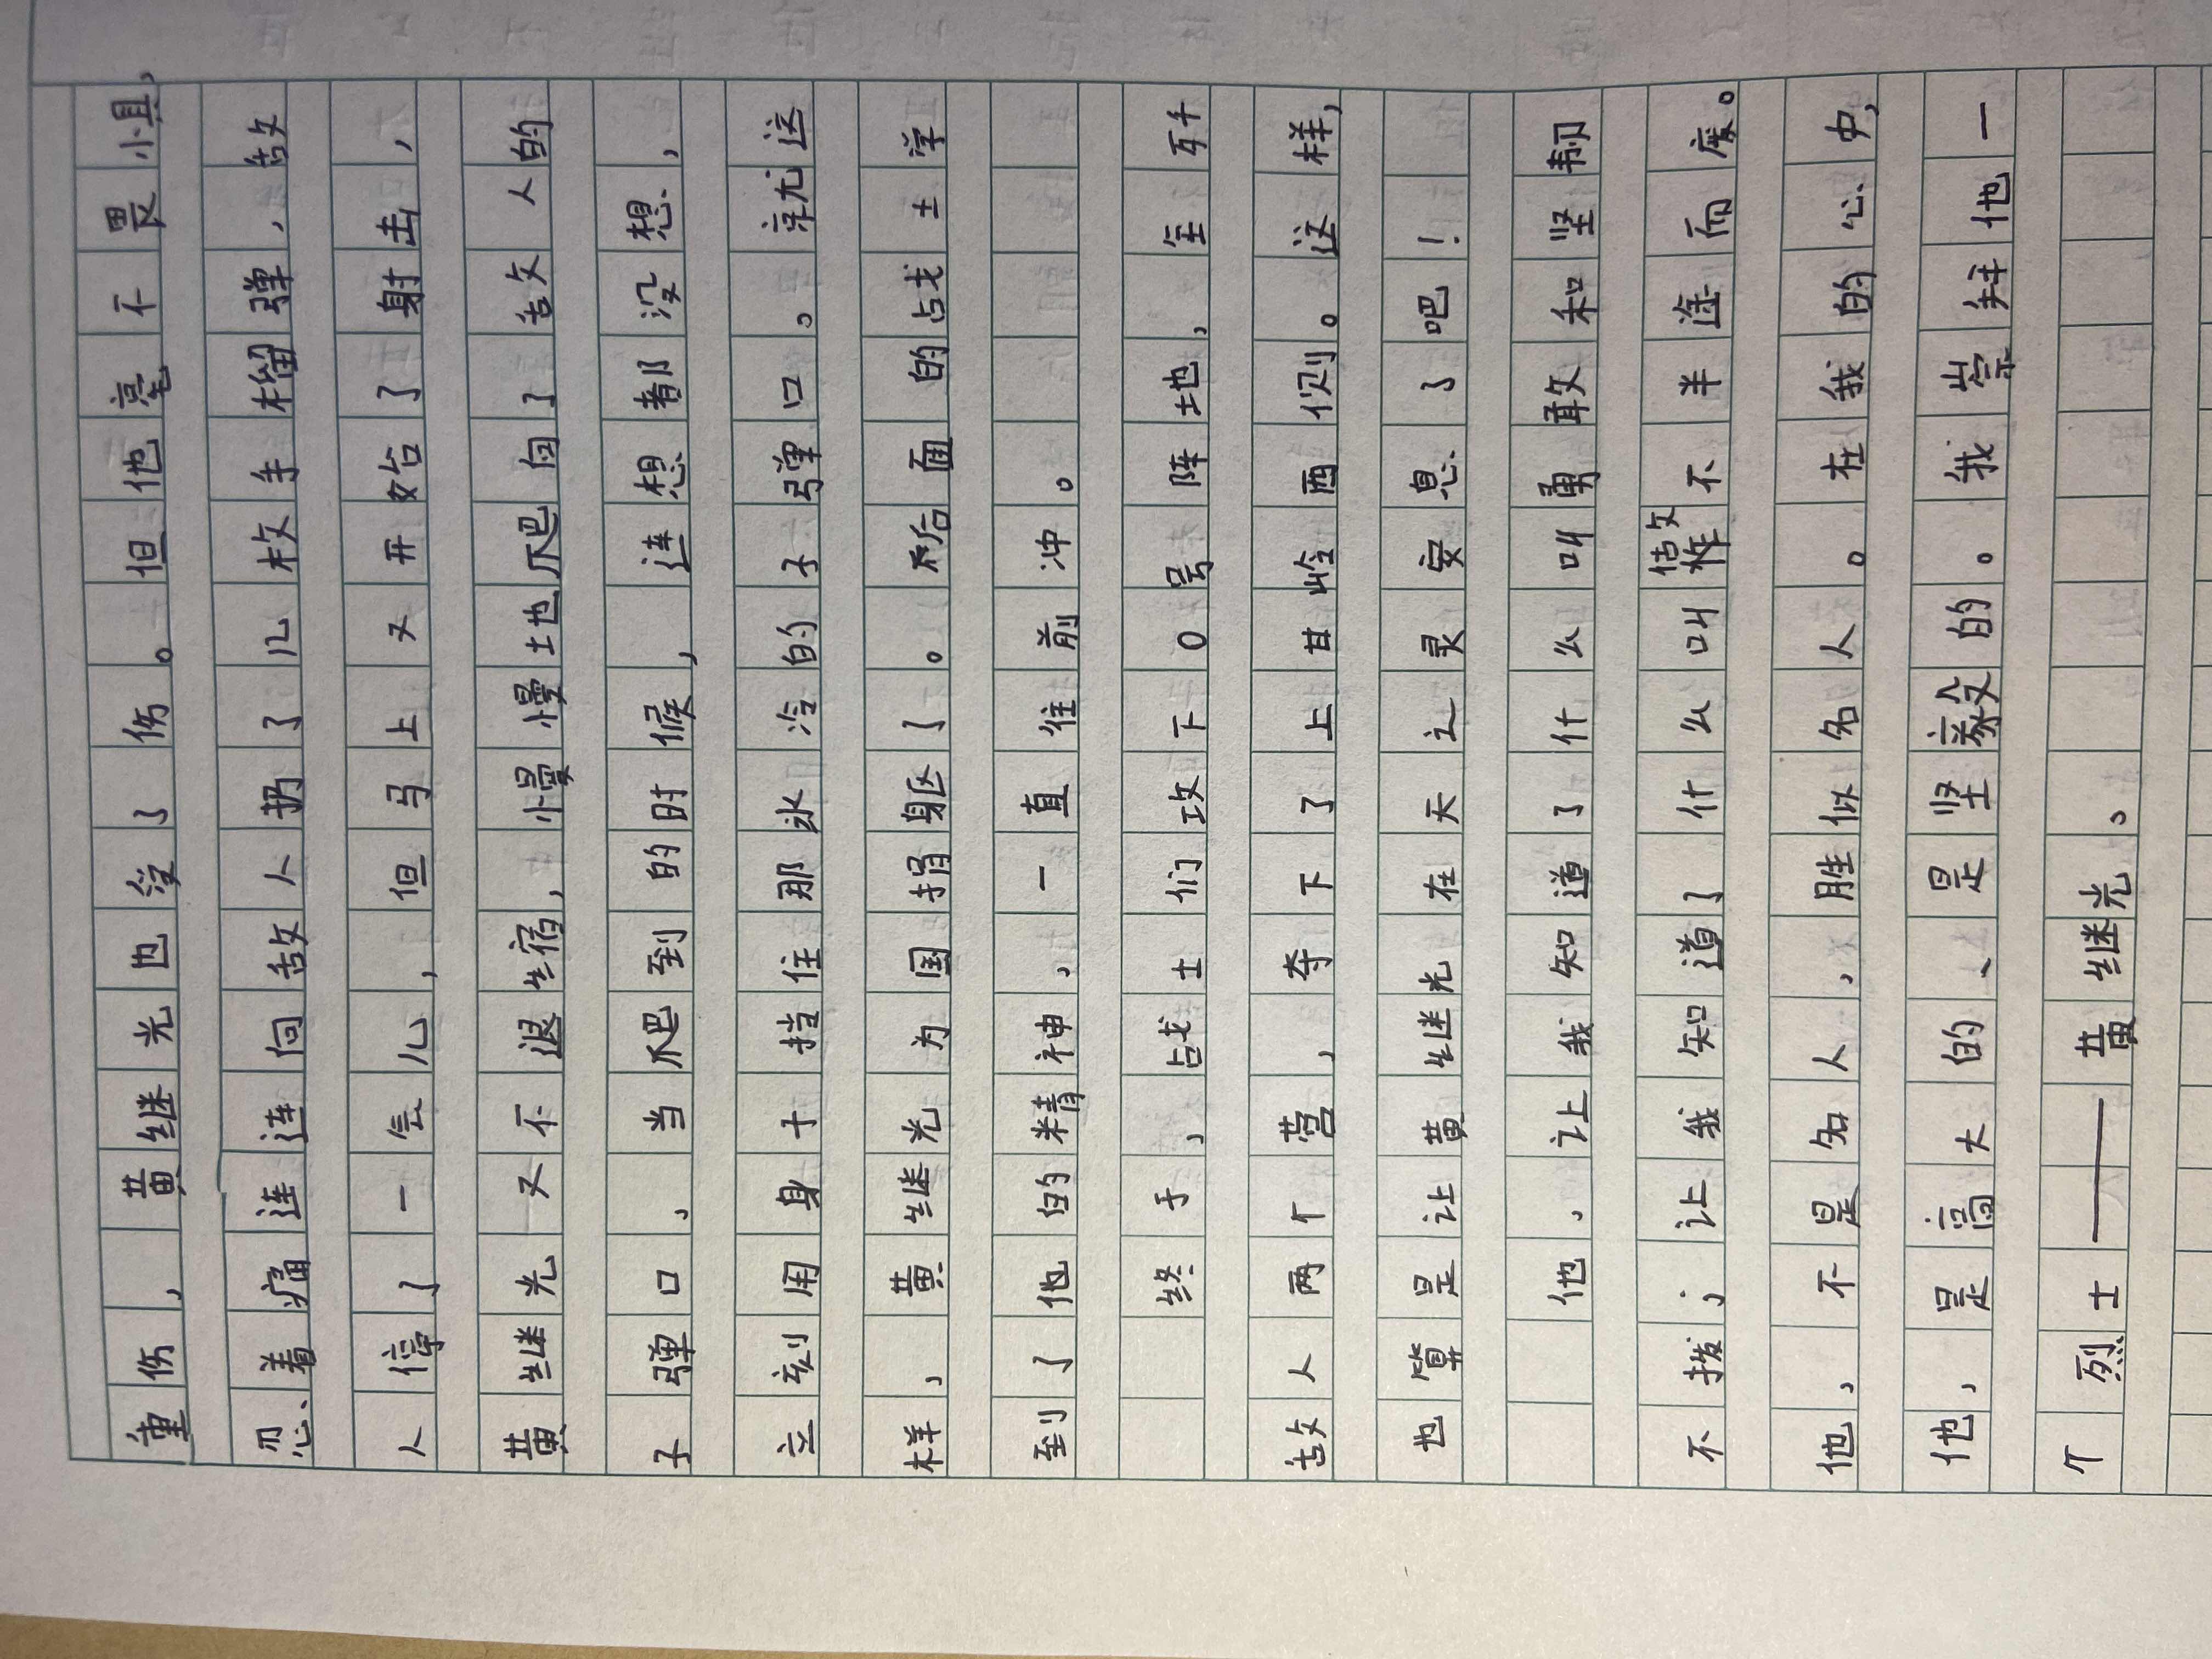 重伤，黄继光也受了伤。但他毫不畏惧，
忍着痛连连向敌人扔了几枚手榴弹，敌
人停了一会儿，但马上又开始了射击，
黄继光又不退缩，慢慢地爬向了敌人的
子弹口，当爬到的时候，连想都没想，
立刻用身干挡住那冰冷的子弹口。就这
样，黄继光为国捐躯了。后面的战士学
到了他的精神，一直往前冲。
终于，战士们攻下0号阵地，全歼
敌人两个营，夺下了上甘岭西侧。这样，
也算是让黄继光在天之灵安息了吧！
他，让我知道了什么叫勇敢和坚韧
不拨；让我知道了什么叫做不半途而废。
他，不是名人，胜似名人。在我的心中，
他，是高大的、是坚毅的。我崇拜他一
个烈士——黄继光。